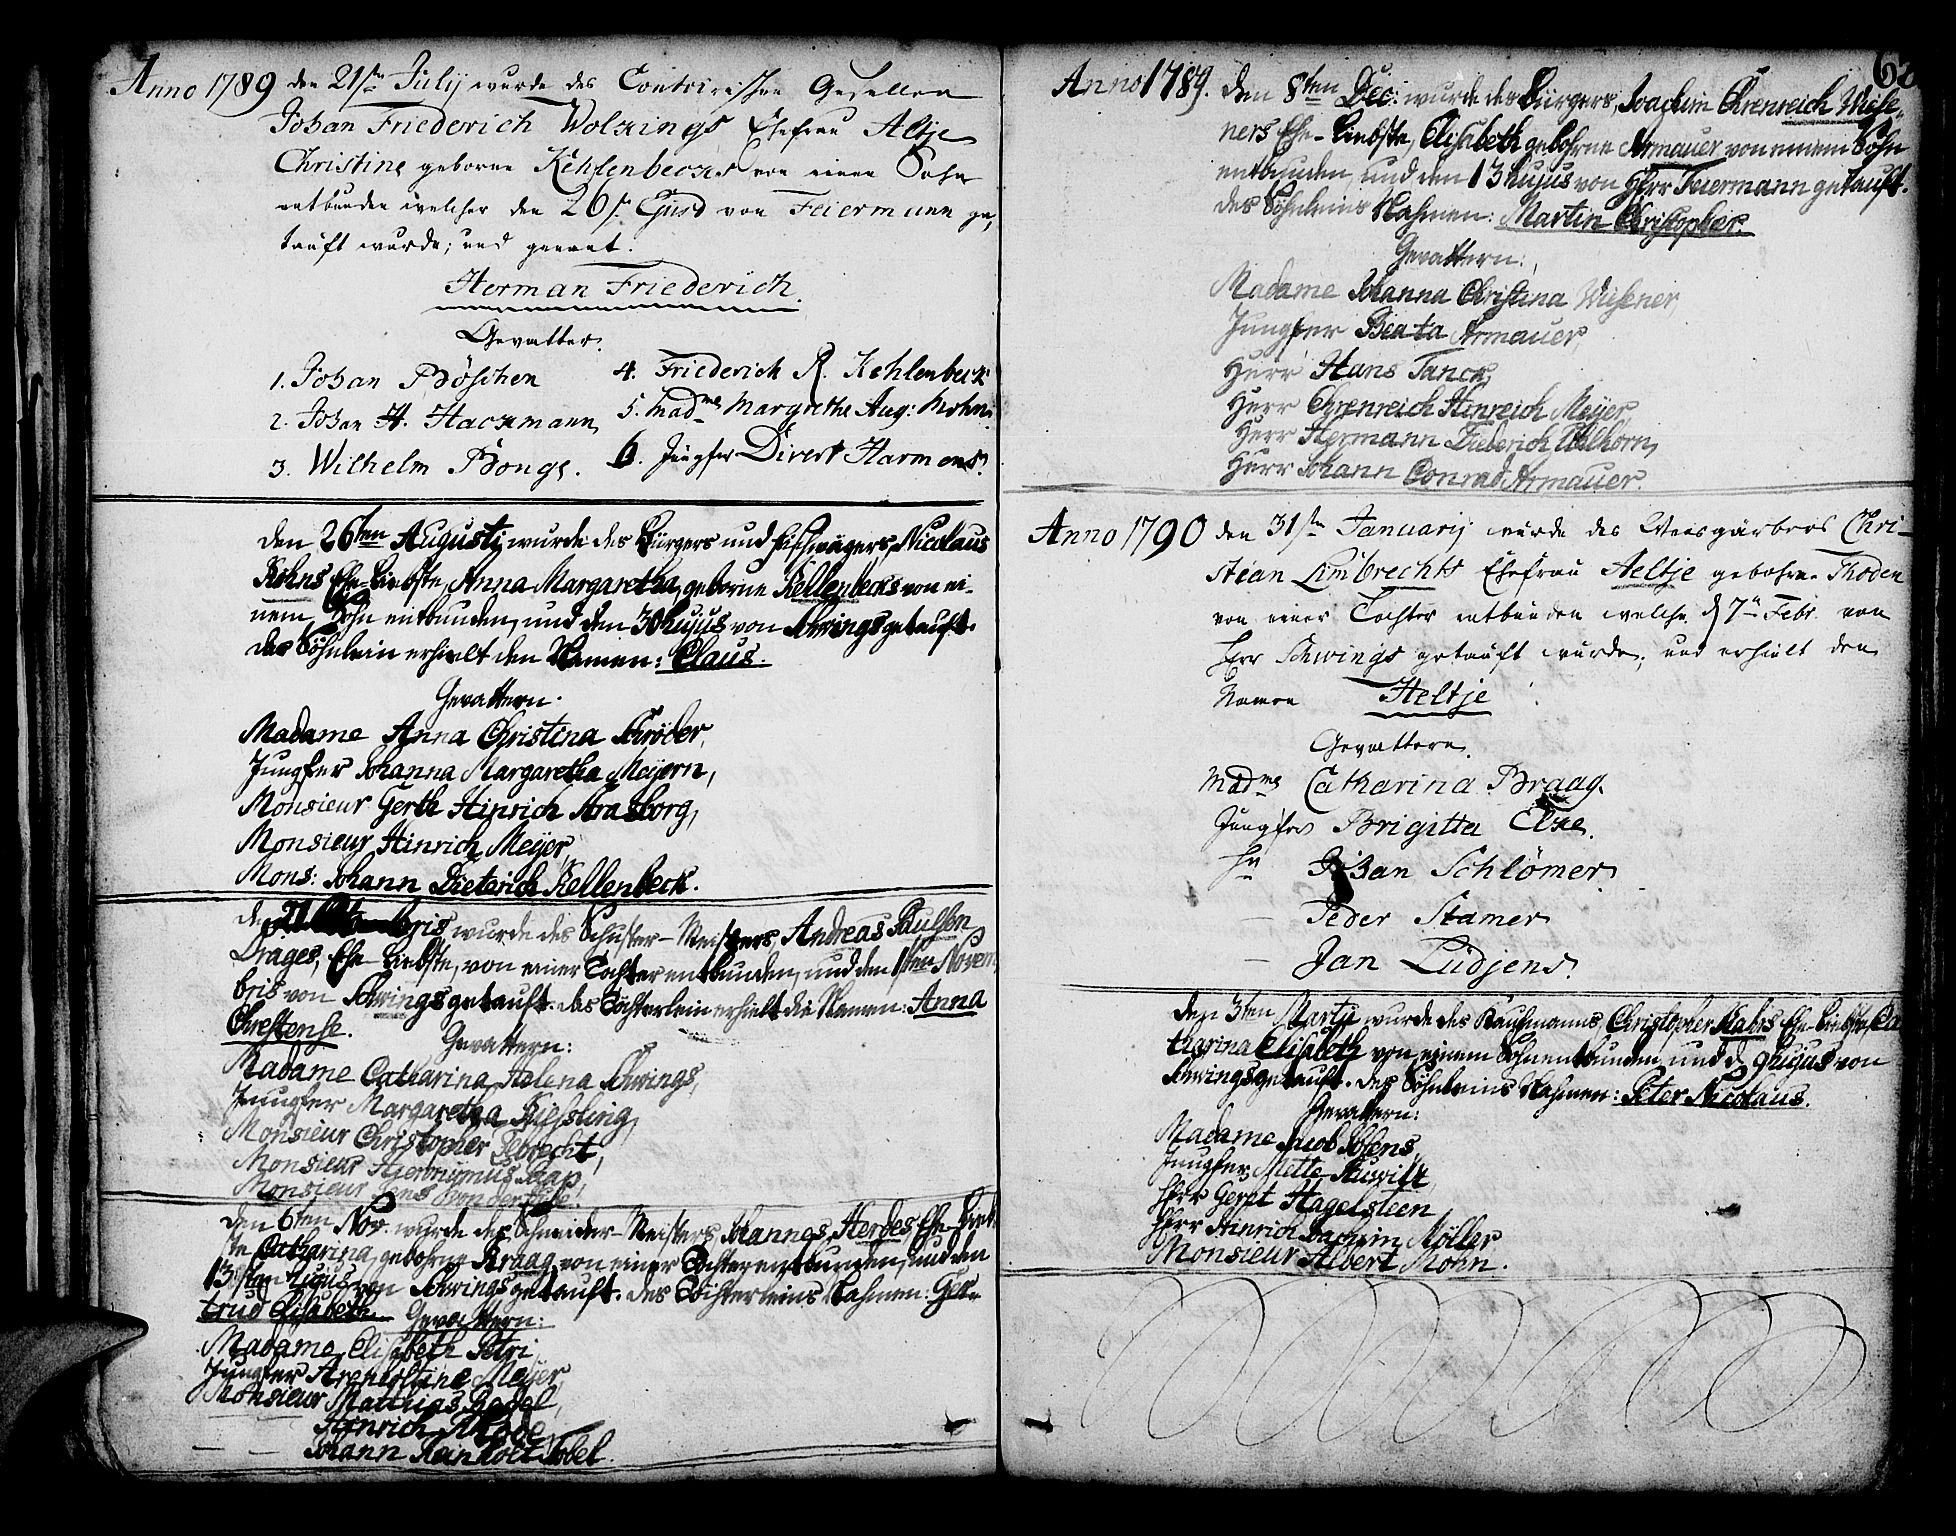 Anno 1789 den 21sten July wurde des Gesellen
Johan Friederich Wolkings, Ehefrau Altje
Christine geborne Kehlenbecks von einen Sohn
entbunden welcher den 26st. Ejusd von Feiermann ge,
tauft wurde; und genent.
Herman Friederich.
Gevatter.
1. Johan Böschen
2. Johan H. Hackmann
3. Wilhelm Bonge.
4. Friederich R. Kehlenbeck
5. Madme Margrethe Aug: Mohn
6. Jungfer Divert Harmens.
den 26ten Augusty wurde des Bürgers und Nicolaus
Köhns Ehe-Liebste, Anna Margaretha, geborne Kellenbecks von ei-
nem Sohn entbunden, und den 30 hujus von Schwings getauft.
des Söhnlein erhielt den Namen: Claus.
Gevattern.
Madame Anna Christina Schröder,
Jungfer Johanna Margaretha Meyern,
Monsieur Gerth Hinrich Strasborg,
Monsieur Hinrich Meyer,
Mons: Johann Dieterich Kellenbeck.
den 21 bris wurde des Schuster-Meisters, Andreas Paulsen
Drages, Ehe-Liebste, von einer Tochter entbunden, und den 1sten Novem
bris von Schwings getauft. das Töchterlein erhielt die Namen: Anna
Chrestense.
Gevattern:
Madame Catharina Helena Schwings,
Jungfer Margaretha Kiessling,
Monsieur Christopher Lebrecht,
Monsieur Hieronymus Raap,
Monsieur Jens von der
den 6ten Nov. wurde des Schneider-Meisters, Johannes Herdes, Ehe-Lieb
ste Catharina, gebohrne Braag, von einer Tochter entbunden, und den
13ten hujus von Schwings getauft. des Töchterleins Nahmen: Ger-
trud Elisabeth. Gevattern:
Madame Elisabeth Petri,
Jungfer Meyer,
Monsieur Matthias Badel,
— — Hinrich Thode,
— — Johann Reinholt Tobel.
62
Anno 1789. den 8ten Dec: wurde des Bürgers, Joachim Ehrenreich Wiese-
ners Ehe-Liebste, Elisabeth gebohrne Armauer von einem Sohn
entbunden, und den 13 hujus von Herr Feiermann getauft.
des Söhnleins Nahmen: Martin Christopher.
Gevattern:
Madame Johanna Christina Wiesener,
Jungfer Beata Armauer,
Herr Hans Tanck,
Herr Ehrenreich Hinreich Meyer,
Herr Hermann Diederich Uhlhorn,
Herr Johann Conrad Armauer.
Anno 1790 den 31sten January wurde des Weisgärbers Chri-
stian Limbrechts Ehefrau Aeltje gebohrne Thoden
von einer Tochter entbunden welche d 7ten Febr. von
Herr Schwings getauft wurde, und erhielt den
Namen Heltje
Gevattern.
Madme Catharina Braag.
Jungfer Brigitta Elze.
Hr Johan Schlömer.
— Peder Stamer
— Jan Lüdjens.
den 3ten Marty wurde des Kaufmanns, Christopher Nahrs Ehe-Liebste, Ca
tharina Elisabeth von einem Sohn entbunden, und d 9 hujus von
Schwings getauft. des Söhnleins Nahmen: Peter Nicolaus.
Gevattern:
Madame Jacob Solens,
Jungfer Mette Auwitt,
Herr Geret Hagelsteen
Herr Hinrich Joachim Möller
Monsieur Albert Mohn.